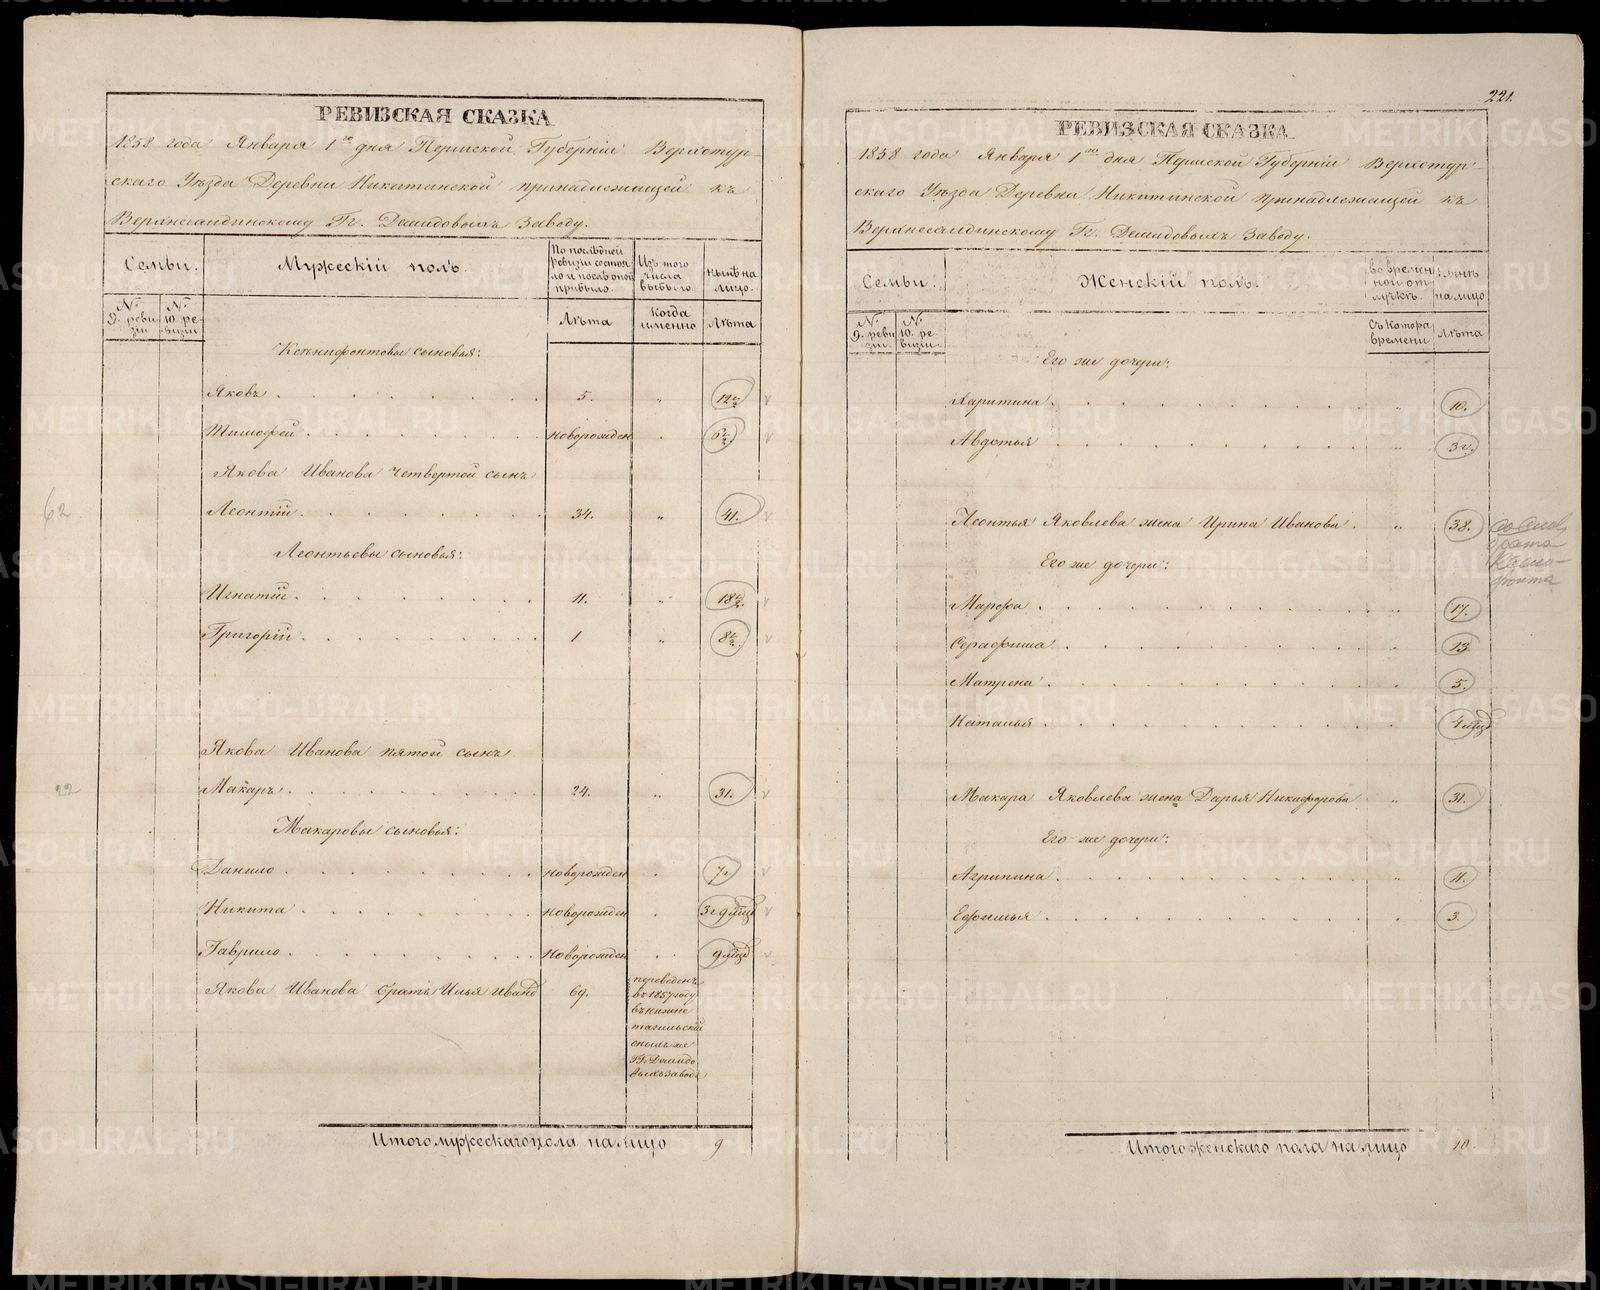 РЕВИЗСКАЯ СКАЗКА
1858 года Января 1го дня Пермской Губерніи Верхотур-
скаго Уѣзда Деревни Никитинской принадлежащей къ
Верхнесалдинскому Гг. Демидовыхъ Заводу.
Семьи.
Мужескій полъ.
По послѣдней ревизіи состояло и послѣ оной прибыло.
Изъ того числа выбыло.
нынѣ на лицо.
№ 9. ревизіи
№ 10. ревизіи
Лѣта
Когда именно
Лѣта
Ксенифонтовы сыновья:
Яковъ 5. 12½
Тимофей новорожден 6½
Якова Иванова четвертой сынъ
62 Леонтій 34. 41.
Леонтьевы сыновья:
Игнатій 11. 18½
Григорій 1 8½
Якова Иванова пятой сынъ
22 Макаръ 24. 31.
Макаровы сыновья:
Данило новорожден 7
Никита новорожден 3г 9 мцъ
Гаврило новорожден 9 мцъ
Якова Иванова братъ Илья Иванъ 69.
переведенъ
въ 1857 году
въ нижне
тагильскій
оныхъ же
Гг. Демидо
выхъ заводъ
Итого мужескаго пола на лицо 9
221.
РЕВИЗСКАЯ СКАЗКА
1858 года Января 1го дня Пермской Губерніи Верхотур-
скаго Уѣзда Деревни Никитинской принадлежащей къ
Верхнесалдинскому Гг. Демидовыхъ Заводу.
Семьи.
Женскій полъ.
во временной отлучкѣ.
нынѣ на лицо
№ 9. ревизіи
№ 10. ревизіи
Съ котора времени
Лѣта
Его же дочери:
Харитина 10.
Авдотья 3г.
Леонтья Яковлева жена Ирина Иванова 38.
Его же дочери:
Марфа 17.
Серафима 13.
Матрена 5.
Наталья 4 мцъ
Макара Яковлева жена Дарья Никифорова 31.
Его же дочери:
Агрипина 11.
Ефимья 3.
Итого женскаго пола на лицо 10.
METRIKI.GASO-URAL.RU